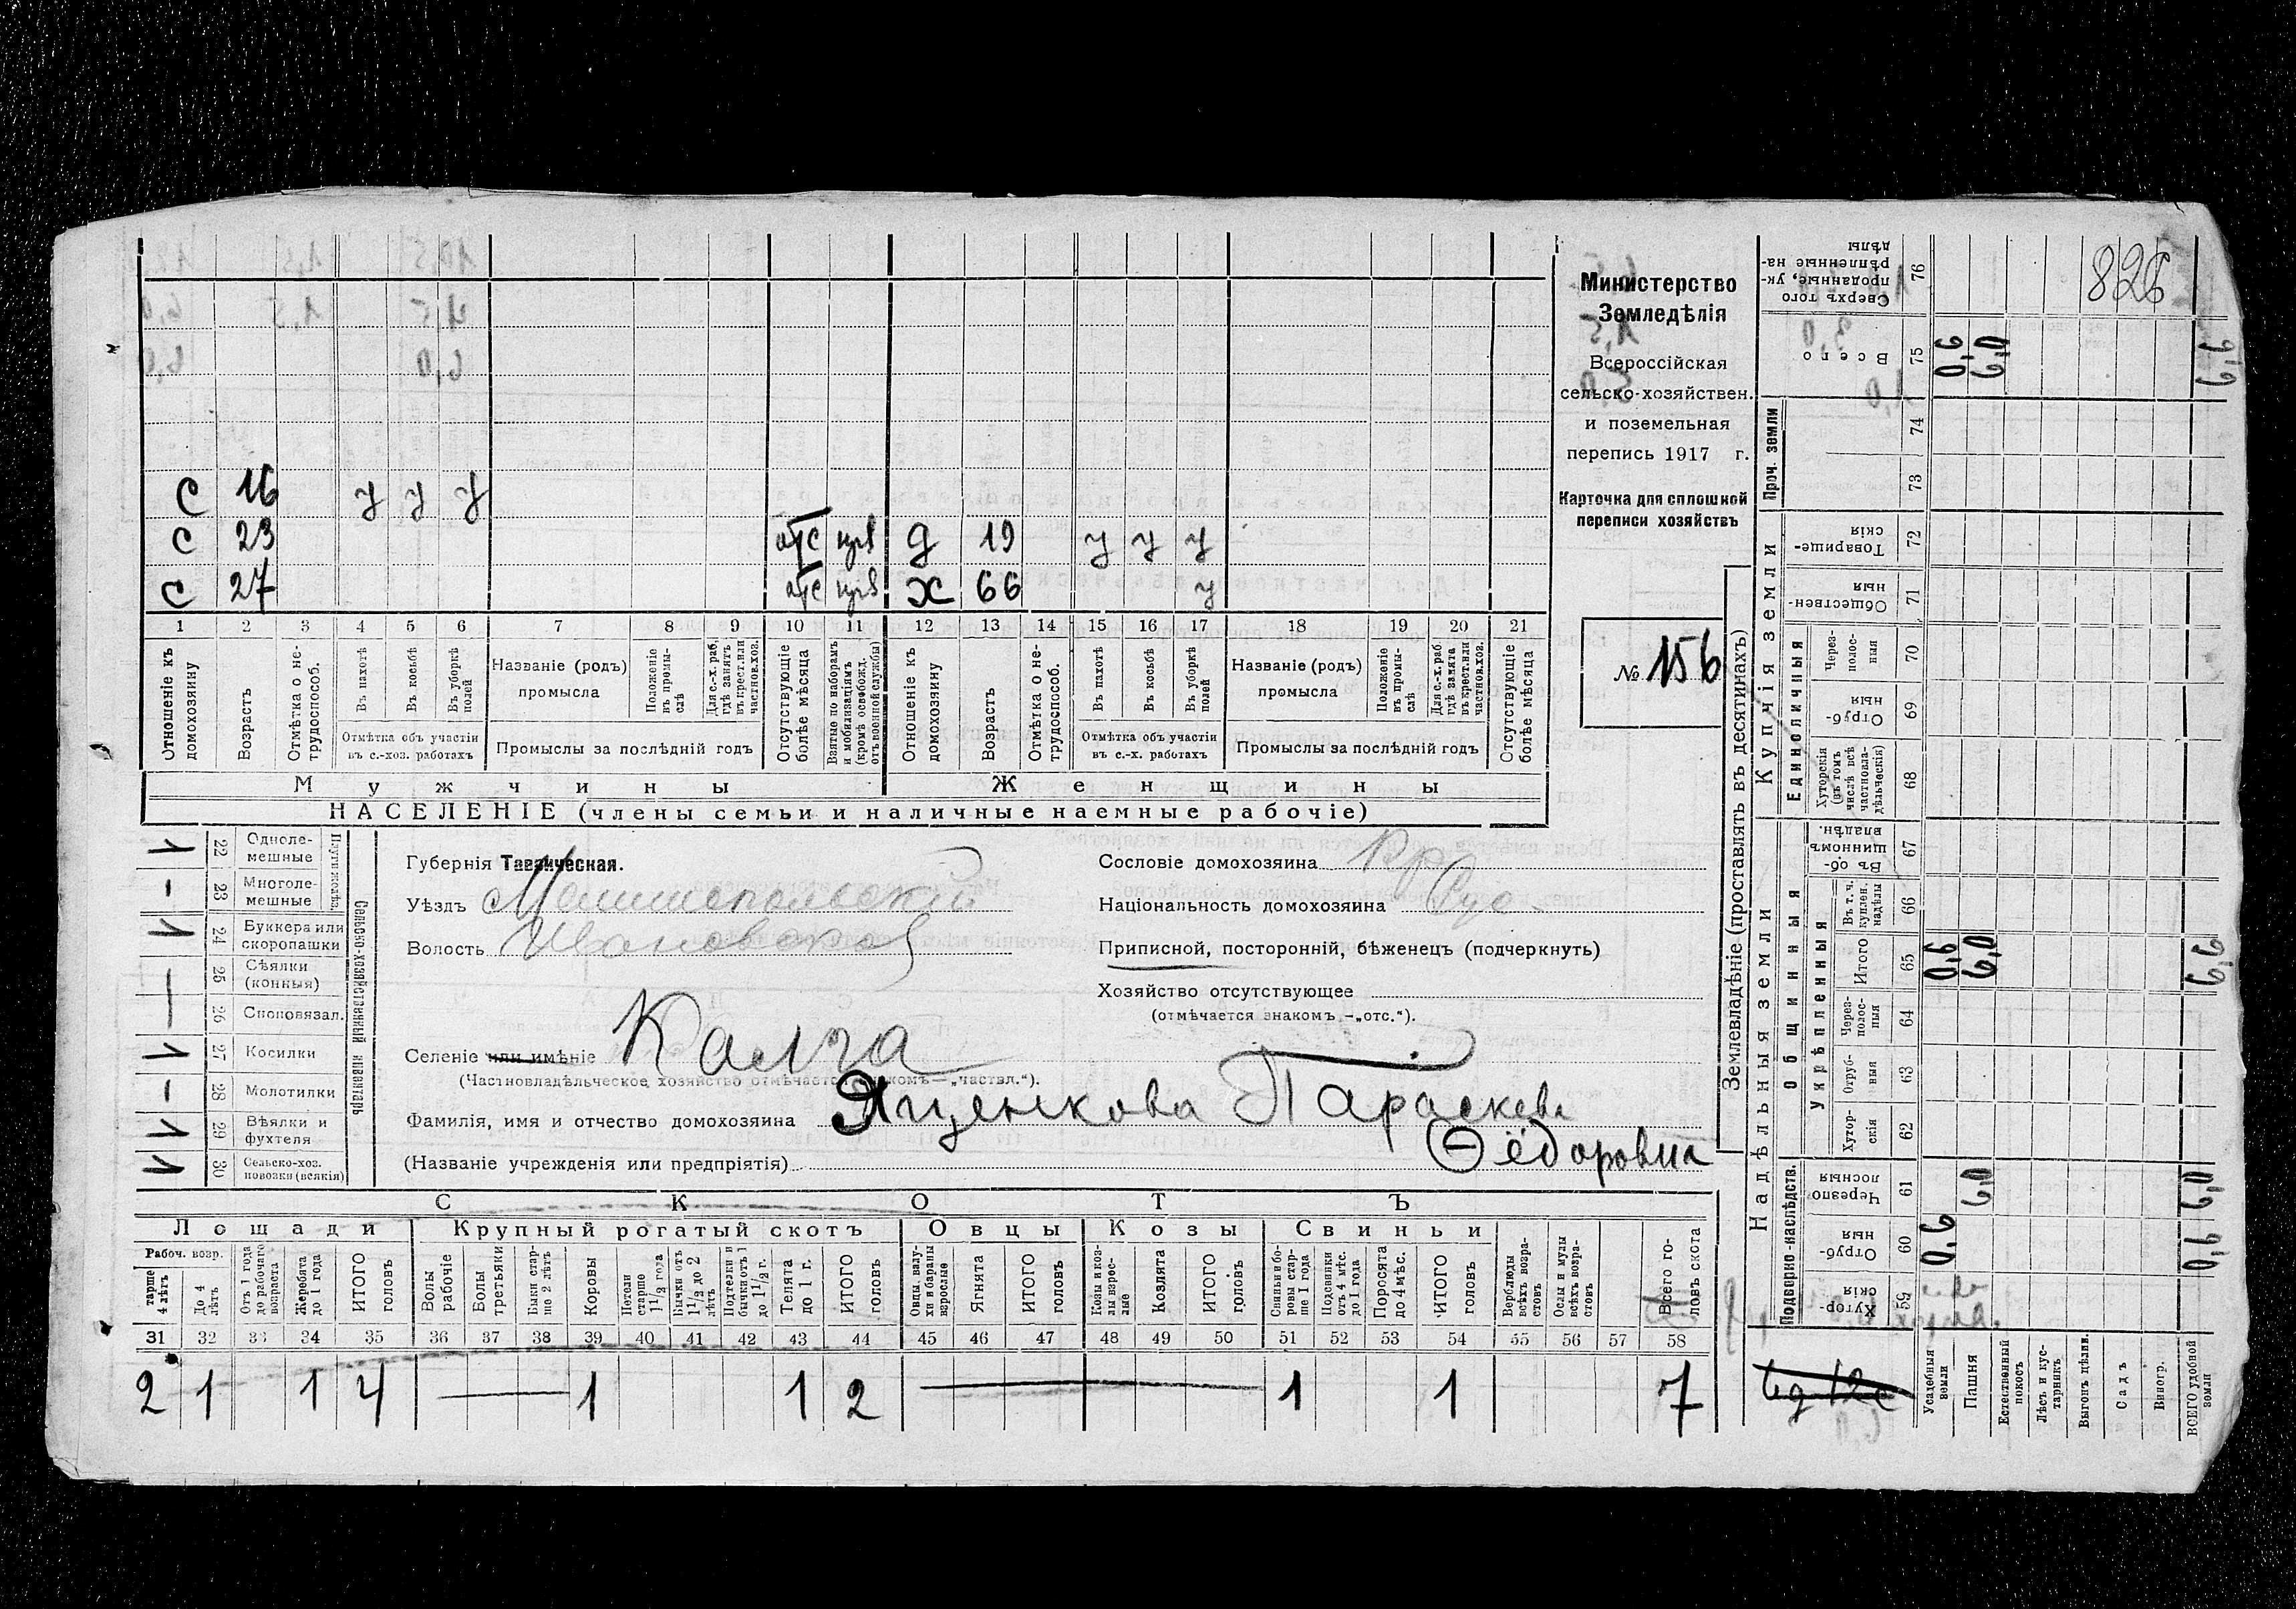 826
С 16 у у у
С 23 отс
Д 19 у у у
С 27 отс
Х 66 у
1 2 3 4 5 6 7 8 9 10 11 12 13 14 15 16 17 18 19 20 21
Отношеніе къ домохозяину
Возрастъ
Отмѣтка о не-трудоспособ.
Въ пахотѣ
Въ косьбѣ
Въ уборкѣ полей
Отмѣтка объ участіи
въ с.-хоз. работахъ
Названіе (родъ)
промысла
Положеніе въ промы-слѣ
Для с.-х. раб. гдѣ занятъ въ крест. или частнов. хоз.
Промыслы за послѣдній годъ
Отсутствующіе болѣе мѣсяца
Взятые по наборамъ и мобилизаціямъ (кромѣ освобожд. отъ военной службы)
Отношеніе къ домохозяину
Возрастъ
Отмѣтка о не-трудоспособ.
Въ пахотѣ
Въ косьбѣ
Въ уборкѣ полей
Отмѣтка объ участіи
въ с.-х. работахъ
Названіе (родъ)
промысла
Положеніе въ промы-слѣ
Для с.-х. раб. гдѣ занята въ крест. или частнов. хоз.
Промыслы за послѣдній годъ
Отсутствующіе болѣе мѣсяца
Мужчины
Женщины
НАСЕЛЕНІЕ (члены семьи и наличные наемные рабочіе)
Министерство
Земледѣлія
Всероссійская
сельско-хозяйствен.
и поземельная
перепись 1917 г.
Карточка для сплошной
переписи хозяйствъ
№ 156
1 22 Одноле-мешные
– 23 Многоле-мешные
1 24 Буккера или скоропашки
— 25 Сѣялки (конныя)
26 Сноповязал.
1 27 Косилки
– 28 Молотилки
1 29 Вѣялки и фухтеля
1 30 Сельско-хоз. повозки (всякія)
Сельско-хозяйственный инвентарь
Губернія Таврическая.
Уѣздъ Мелитопольскій
Волость
Селеніе или имѣніе
(Частновладѣльческое хозяйство отмѣчается знакомъ—„частвл.“).
Фамилія, имя и отчество домохозяина Яценкова Параскева
Ѳёдоровна
(Названіе учрежденія или предпріятія)
Сословіе домохозяина Кр
Національность домохозяина Рус
Приписной, посторонній, бѣженецъ (подчеркнуть)
Хозяйство отсутствующее
(отмѣчается знакомъ –„отс.“).
СКОТЪ
Лошади
Крупный рогатый скотъ
Овцы
Козы
Свиньи
Рабоч. возр.
старше 4 лѣтъ
До 4 лѣтъ
Отъ 1 года до рабочаго возраста
Жеребята до 1 года
ИТОГО головъ
Волы рабочіе
Волы третьяки
Быки стар-ше 2 лѣтъ
Коровы
Нетели старше 1 1/2 года
Бычки отъ 1 1/2 до 2 лѣтъ
Подтелки и бычки отъ 1 до 1 1/2 г.
Телята до 1 г.
ИТОГО головъ
Овцы, валу-хи и бараны взрослые
Ягнята
ИТОГО головъ
Козы и коз-лы взрос-лые
Козлята
ИТОГО головъ
Свиньи и бо-ровы стар-ше 1 года
Подсвинки отъ 4 мѣс. до 1 года
Поросята до 4 мѣс.
ИТОГО головъ
Верблюды всѣхъ возра-стовъ
Ослы и мулы всѣхъ возра-стовъ
Всего го-ловъ скота
31 32 33 34 35 36 37 38 39 40 41 42 43 44 45 46 47 48 49 50 51 52 53 54 55 56 57 58
2 1 1 4 — 1 1 2 — 1 1 7
Землевладѣніе (проставлять въ десятинахъ)
Надѣльныя земли
Купчія земли
Проч. земли
Подворно-наслѣдств.
Общинныя
Укрѣпленныя
Единоличныя
Хутор-скія 59
Отруб-ныя 60
Черезпо-лосныя 61
Хутор-скія 62
Отруб-ныя 63
Через-полос-ныя 64
Итого 65
Въ т. ч. куплен. надѣлы 66
Въ об-щинномъ владѣн. 67
Хуторскія (въ томъ числѣ всѣ частновла-дѣльческія) 68
Отруб-ныя 69
Через-полос-ныя 70
Обществен-ныя 71
Товарище-скія 72
73
74
Всего 75
Сверхъ того проданные, ук-рѣпленные на-дѣлы 76
Усадебныя земли 0,6 0,6 0,6
Пашня 6,0 6,0 6,0
Естественный покосъ
Лѣсъ и кус-тарникъ
Выгонъ цѣлин.
Садъ
Виногр.
ВСЕГО удобной земли 0,6 6,0 6,6 6,6